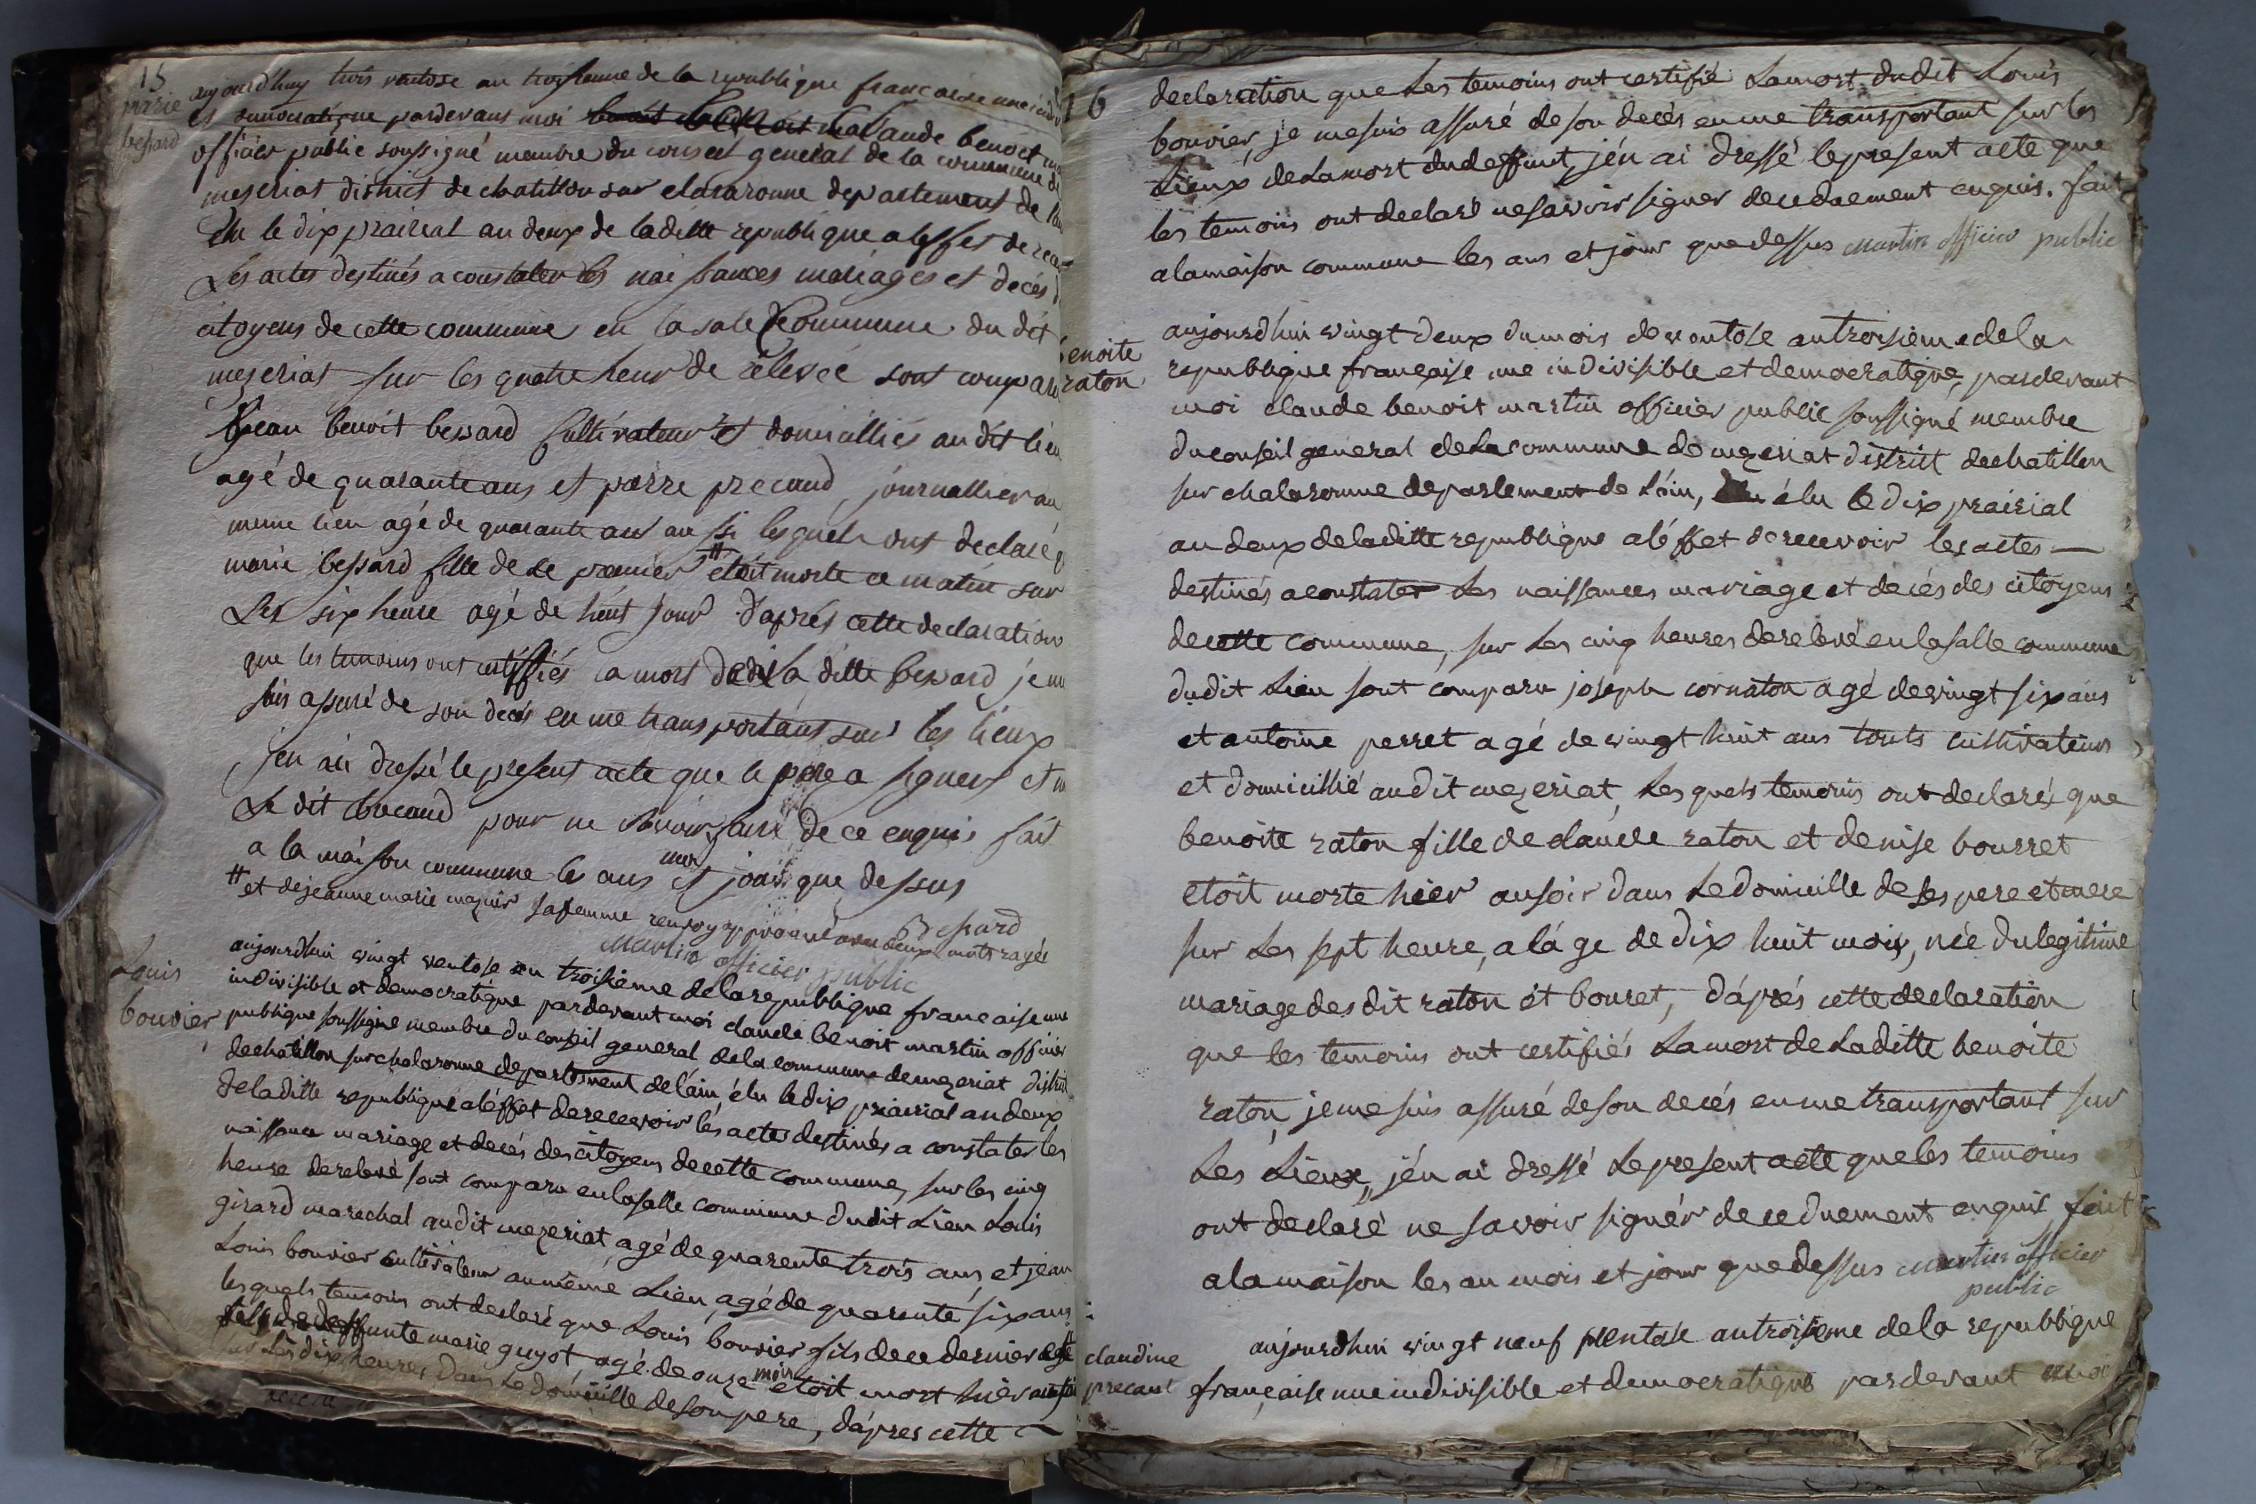 15
marie
bessard
aujourd'huy trois ventose an troisieme de la republique francaise une ind
et democratique pardevant moi claude benoit m
officier public soussigné membre du conseil general de la commune de
meseriat district de chatillon sur clararonne departement de l'ain
Elu le dix prairial an deux de la ditte republique a leffet de rece
Les actes destinés a constater les naissances mariages et decés d
citoyens de cette commune en la sale Commune du dit
mezeriat sur les quatre heur de relevée sont comparu
jean benoit bessard Cultivateur et domicilliés au dit lieu
agé de quarante ans et pierre precaud journallier au
meme lieu agé de quarante ans aussi lesquels ont declaré q
marie bessard fille de Le premier # etoit morte ce matin sur
Les six heure agé de huit jour d'aprés cette declaration
que les temoins ont certiffiés la mort de la ditte bessard je me
suis assuré de son decés en me transportant sur les lieux
jen ai dressé le present acte que le pere a signer et n
Le dit precaud pour ne savoir faire de ce enquis fait
a la maison commune le ans mois et jour que dessus
# et de jeanne marie mazuir sa femme renvoy approuvé avec deux mots rayés
Bessard
martin officier public
Louis
bouvier
aujourdhui vingt ventose an troisieme de la republique francaise une
indivisible et democratique pardevant moi claude benoit martin officier
publique soussigné membre du conseil general de la commune de mezeriat district
de chatillon sur chalaronne departement de l'ain, élu le dix prairial an deux
de laditte republique a léffet de recevoir lés actes destinés a constater les
naissance mariage et decés des citoyens de cette commune, sur les cinq
heure de relevé sont comparu en la salle commune dudit Lieu Louis
girard marechal audit mezeriat agé de quarente trois ans et jean
Louis bouvier cultivateur au même Lieu agé de quarente six ans
lesquels temoin ont declaré que Louis bouvier fils de ce dernier et
de deffunte marie guyot agé de onze mois etoit mort hiér au soir
sur Les dix heures dans le domicille de son pere, d'áprés cette

16
declaration que Les temoins ont certifié La mort dudit Louis
bouvier, je me suis assuré de son decés en me transportant sur les
Lieux de La mort du deffunt, jén ai dressé le present acte que
les temoins ont declaré ne savoir signer de ce duement enquis. fait
a la maison commune les ans et jour que dessus martin officier public
benoite
raton
aujourdhui vingt deux du mois de ventose an troisieme de la
republique française une indivisible et democratique, pardevant
moi claude benoit martin officier public soussigné membre
du conseil general de La commune de mezeriat district de chatillon
sur chalaronne departement de L'ain, élu le dix prairial
an deux de laditte republique a léffet de recevoir les actes
destinés a constater Les naissances mariage et decés des citoyens
de cette commune, sur Les cinq heures de relevé en la salle commune
dudit Lieu sont comparu joseph cornaton agé de vingt six ans
et antoine perret agé de vingt huit ans touts cultivateurs
et domicillié audit mezeriat, Lesquels temoins ont declarés que
benoite raton fille de claude raton et denise bourret
etoit morte hier au soir dans Le domicille de ses pere et mere
sur Les sept heure, a lá ge de dix huit mois, née du legitime
mariage des dit raton ét bouret, dáprés cette declaration
que les temoins ont certifiés La mort de Laditte benoite
raton, je me suis assuré de son decés en me transportant sur
Les Lieux, jén ai dressé Le present acte que les temoins
ont declaré ne savoir signér de ce duement enquis fait
a la maison les an mois et jour que dessus martin officier
public
claudine
precaut
aujourdhui vingt neuf ventose an troisieme de la republique
française une indivisible et democratique pardevant moi